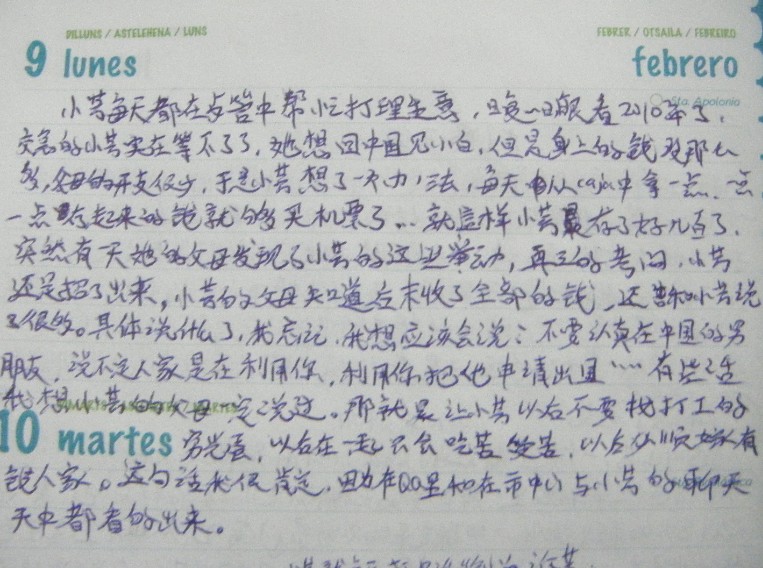 PILLUNS / ASTELEHENA / LUNS
FEBRER / OTSAILA / FEBREIRO
9 lunes
febrero
Sta. Apolonia
小芸每天都在多营中帮忙打理生意,眼看2010年了,
交急的小芸实在等不了了,她想回中国见小白,但是身上的钱没那么
多,父母的开支很少,于是小芸想了一个办法,每天从caja中拿一点,一点
一点起来的钱就够买机票了…就這样小芸最存了好几百了,
突然有天她的父母发现了小芸的这些举动,再三的考问,小芸
还是招了出来,小芸的父母知道后末收了全部的钱,还和小芸说
了很多。具体说什么了,我忘记,我想应该会说:不要认真在中国的男
朋友,说不定人家是在利用你,利用你把他申请出国……有些话
我想小芸的父母一定说过。那就是让小芸以后不要找打工的
10 martes
穷光蛋,以后在一起只会吃苦受苦,以后必须嫁有
钱人家。这句话我很肯定,因为在QQ里和在市中心与小芸的聊天
天中都看的出来。